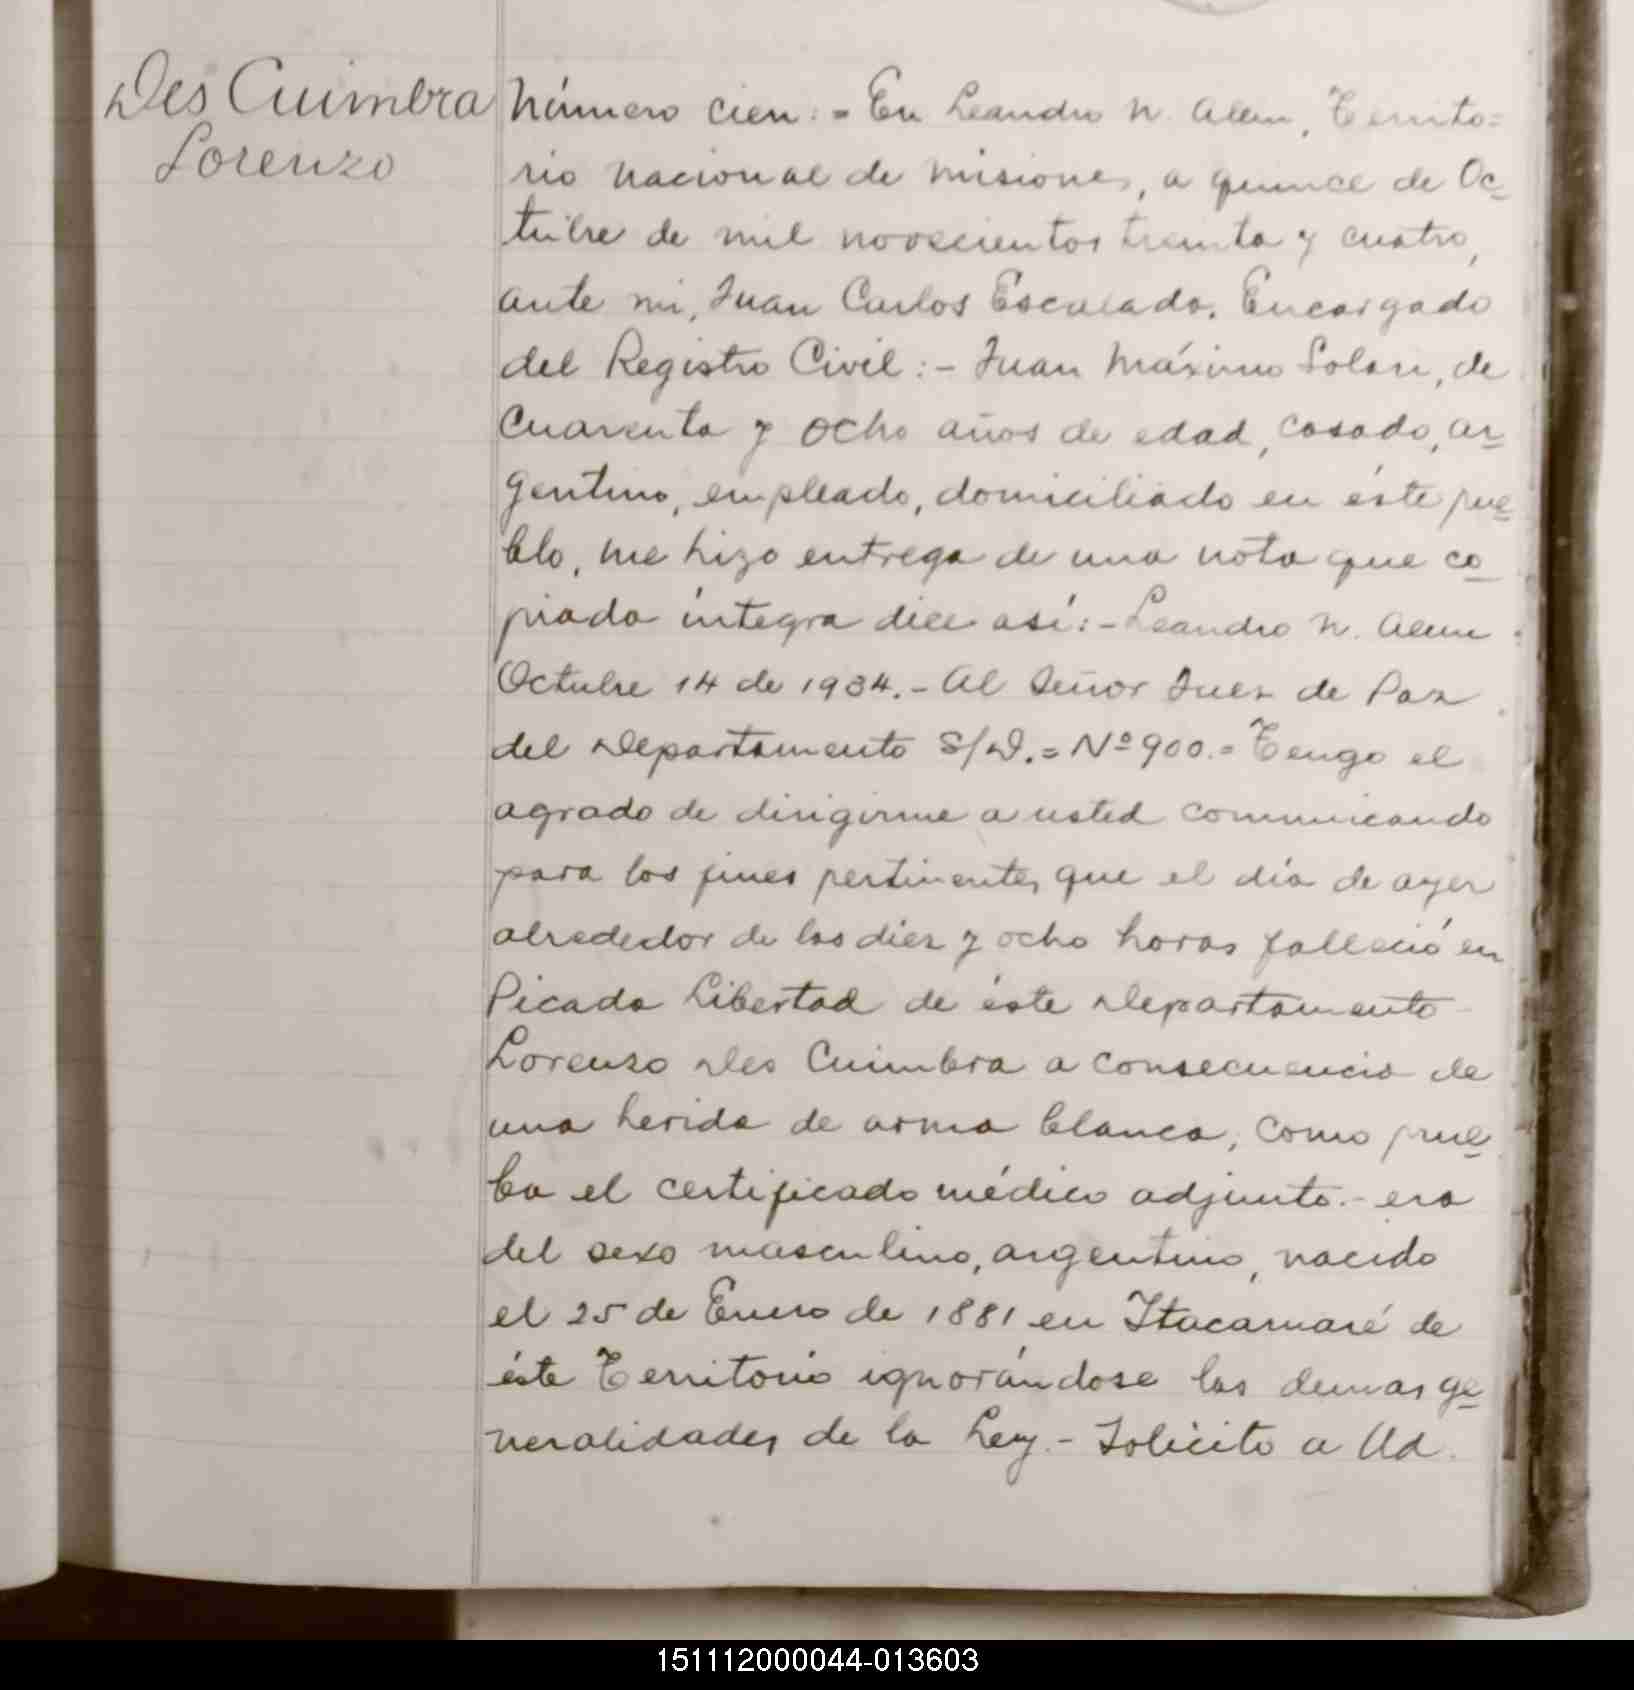 Des Cuimbra
Lorenzo
Número cien:= En Leandro N. Alem, Territo=
rio Nacional de Misiones, a quince de Oc-
tubre de mil novecientos treinta y cuatro,
ante mi, Juan Carlos Escalada. Encargado
del Registro Civil:- Juan Máximo Solari, de
cuarenta y ocho años de edad, casado, ar-
gentino, empleado, domiciliado en éste pue-
blo, me hizo entrega de una nota que co-
piada íntegra dice así:- Leandro N. Alem
Octubre 14 de 1934.- Al Señor Juez de Paz
del Departamento S/D.= Nº 900.= Tengo el
agrado de dirigirme a usted comunicando
para los fines pertinentes que el día de ayer
alrededor de las diez y ocho horas falleció en
Picada Libertad de éste Departamento
Lorenzo Des Cuimbra a consecuencia de
una herida de arma blanca, como prue-
ba el certificado médico adjunto.- era
del sexo masculino, argentino, nacido
el 25 de Enero de 1881 en Itacaruaré de
éste Territorio ignorándose las demas ge-
neralidades de la Ley.- Solicito a Ud.
151112000044-013603